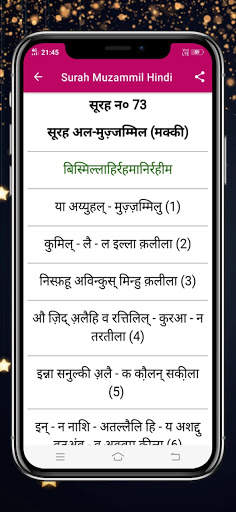 21:45
Surah Muzammil Hindi
सूरह न० 73
सूरह अल-मुज़्ज़म्मिल (मक्की)
बिस्मिल्लाहिर्रहमानिर्रहीम
या अय्युहल् - मुज़्ज़म्मिलु (1)
कुमिल् - लै - ल इल्ला क़लीला (2)
निस्फ़हू अविन्कुस् मिन्हु क़लीला (3)
औ ज़िद् अ़लैहि व रत्तिलिल् - कुरआ - न
तरतीला (4)
इन्ना सनुल्की अ़लै - क कौ़लन् सकी़ला
(5)
इन् - न नाशि - अतल्लैलि हि - य अशद्दु